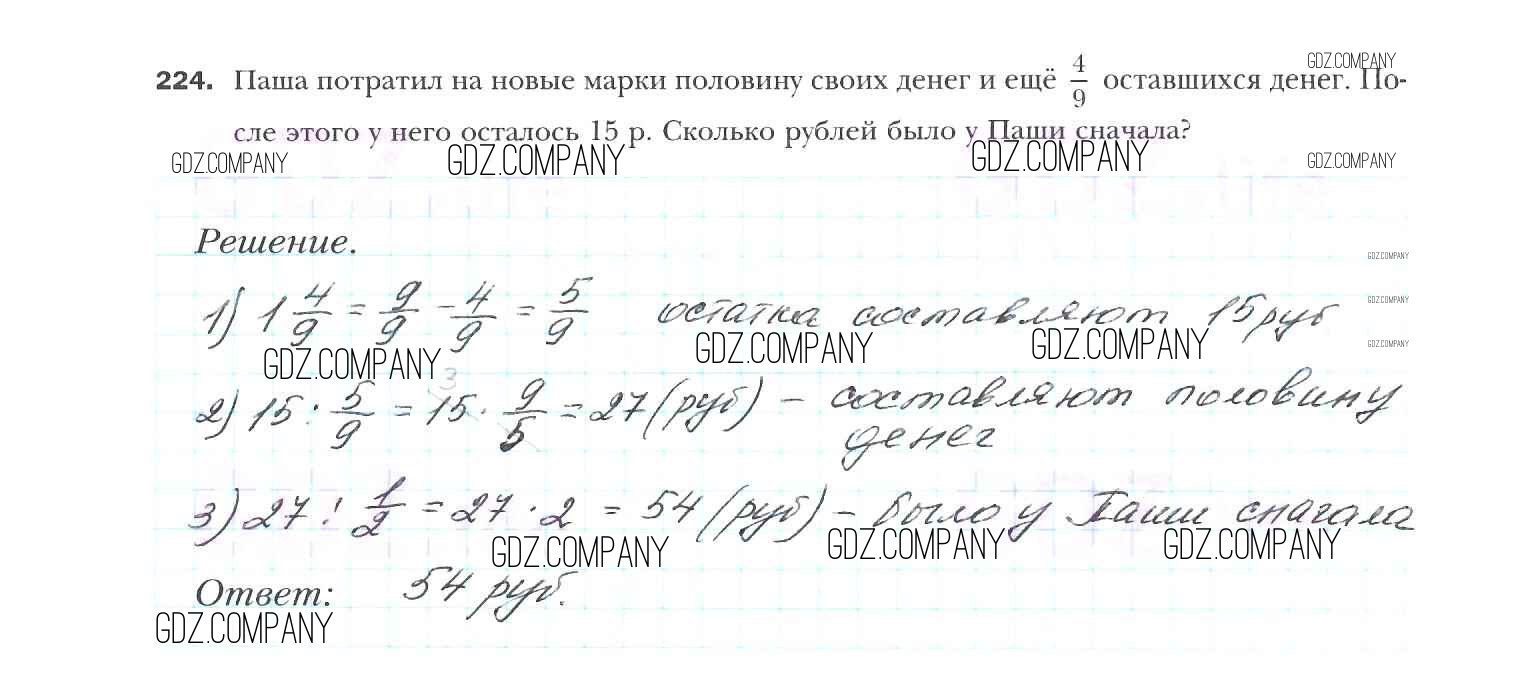 GDZ.COMPANY
224. Паша потратил на новые марки половину своих денег и ещё 4/9 оставшихся денег. По-
сле этого у него осталось 15 р. Сколько рублей было у Паши сначала?
GDZ.COMPANY GDZ.COMPANY GDZ.COMPANY GDZ.COMPANY
Решение.
GDZ.COMPANY
1) 1 4/9 = 9/9 - 4/9 = 5/9 остатка составляют 15 руб
GDZ.COMPANY
GDZ.COMPANY GDZ.COMPANY GDZ.COMPANY GDZ.COMPANY
3
2) 15 : 5/9 = 15 · 9/5 = 27 (руб) - составляют половину
денег
3) 27 : 1/2 = 27 · 2 = 54 (руб) - было у Паши сначала
GDZ.COMPANY GDZ.COMPANY GDZ.COMPANY
Ответ: 54 руб.
GDZ.COMPANY